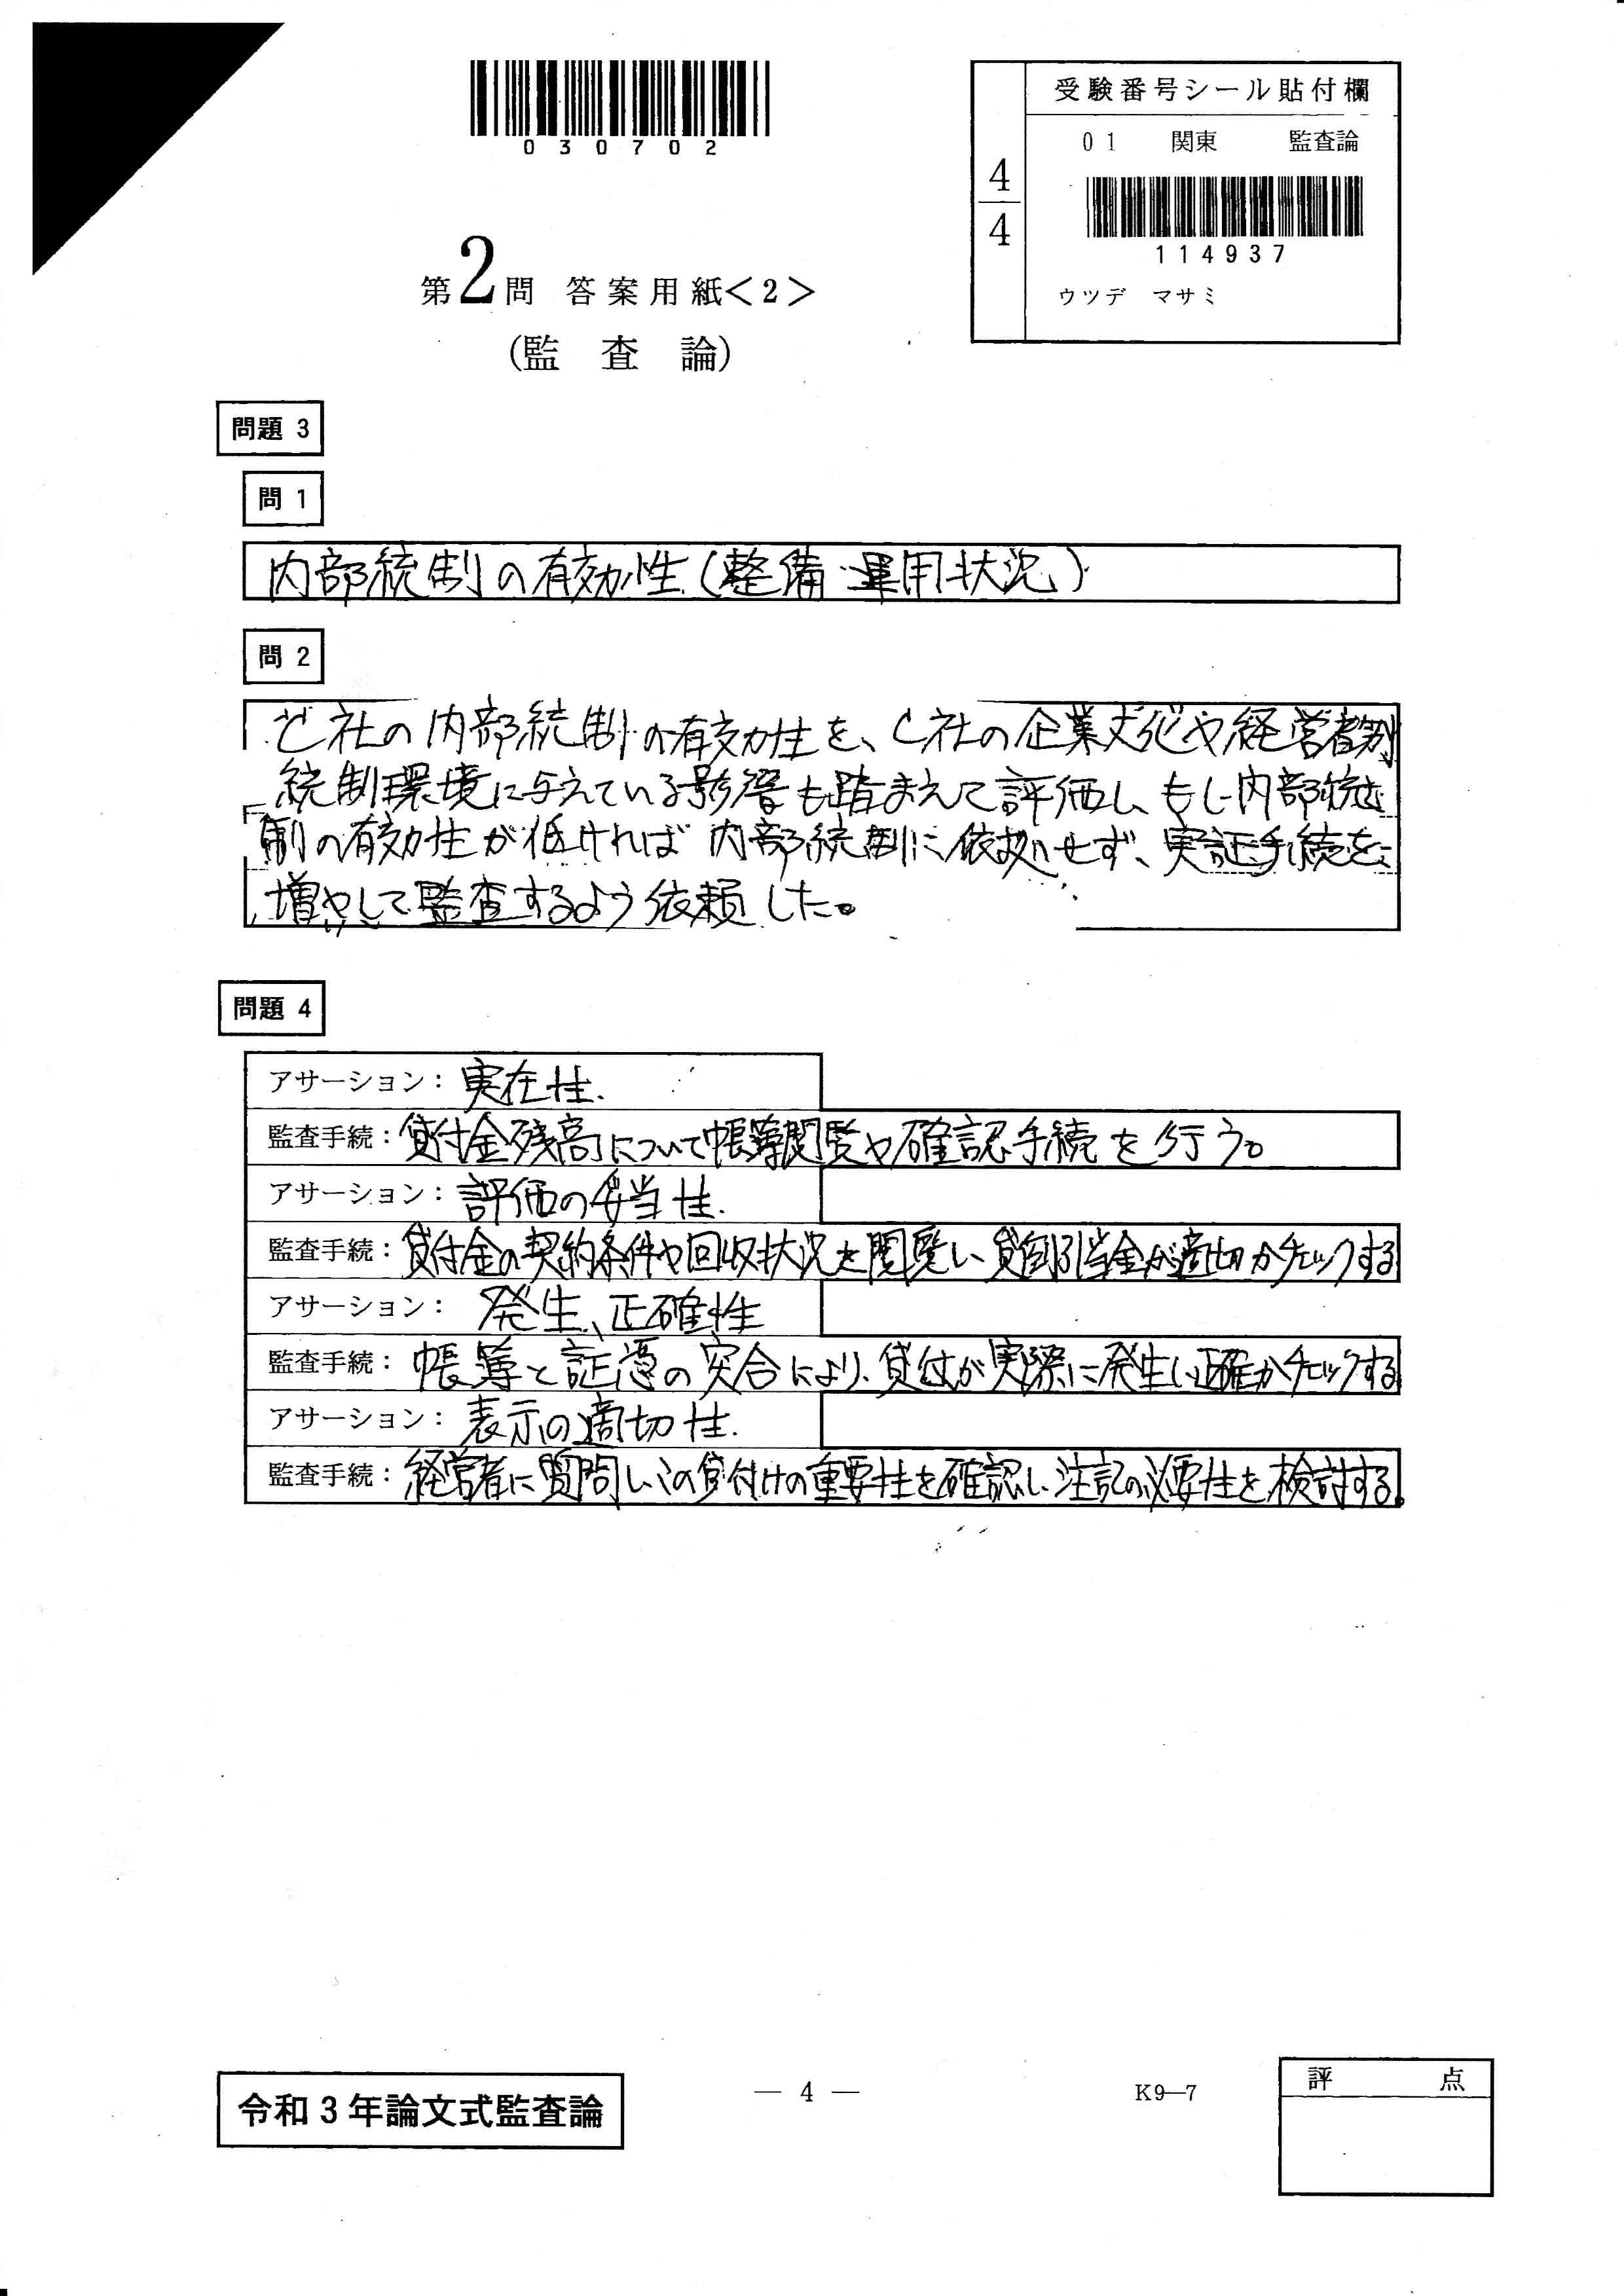 030702
受験番号シール貼付欄
4/4
01 関東 監査論
114937
ウツデ マサミ
第2問 答案用紙<2>
(監 査 論)
問題 3
問 1
内部統制の有効性(整備・運用状況)
問 2
C社の内部統制の有効性を、C社の企業文化や経営者が
統制環境に与えている影響も踏まえて評価し、もし内部統
制の有効性が低ければ内部統制に依拠せず、実証手続を
増やして監査するよう依頼した。
問題 4
アサーション: 実在性.
監査手続: 貸付金残高について帳簿閲覧や確認手続を行う。
アサーション: 評価の妥当性.
監査手続: 貸付金の契約条件や回収状況を閲覧し、貸倒引当金が適切かチェックする
アサーション: 発生、正確性
監査手続: 帳簿と証憑の突合により、貸付が実際に発生し、正確かチェックする
アサーション: 表示の適切性.
監査手続: 経営者に質問し、この貸付けの重要性を確認し、注記の必要性を検討する。
令和3年論文式監査論
— 4 —
K9—7
評 点